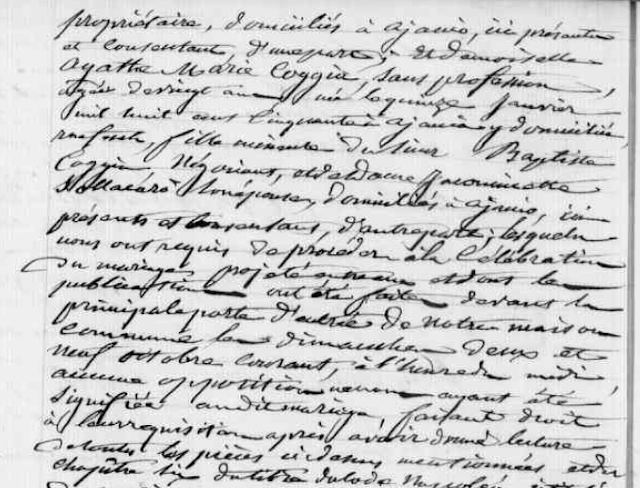 propriétaire, domiciliés à ajaccio, ici présents
et consentant, d'une part; et demoiselle
Agathe Marie Coggia, sans profession,
agée de vingt ans née le quinze janvier
mil huit cent cinquante à ajaccio y domiciliée
fille mineure du sieur Baptiste
Coggia Négociant, et de dame
son épouse, domiciliés à ajaccio, ici
présents et consentant, d'autre part; lesquels
nous ont requis de procéder à la célébration
du mariage projeté entre eux et dont la
publication ont été faite devant la
principale porte d'entrée de notre maison
commune les dimanches deux et
neuf octobre courant, à l'heure de midi,
aucune opposition ayant été
signifiée audit mariage faisant droit
à leur requisition après avoir donné lecture
de toutes les pièces ci dessus mentionnées et du
chapitre six du titre du Code Napoléon